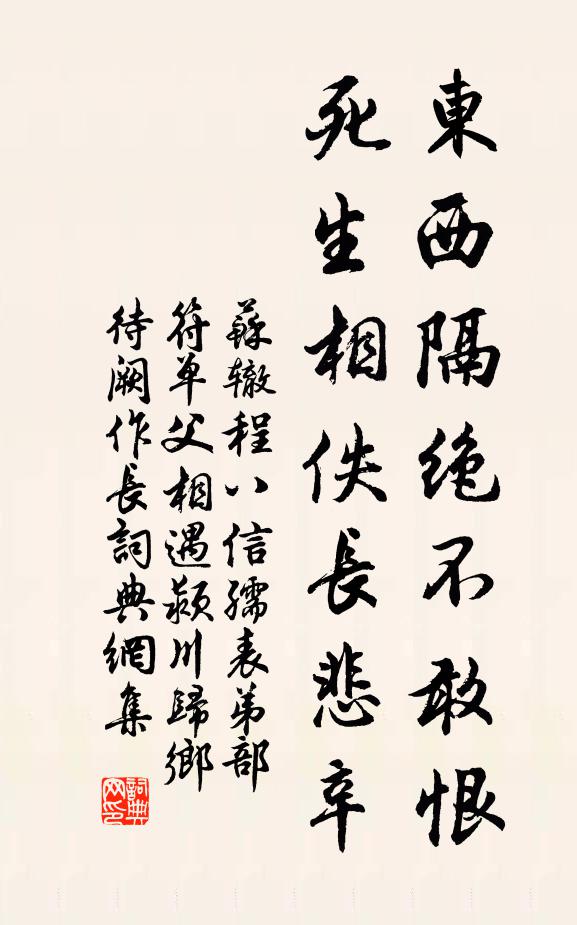 東西隔绝不敢恨
死生相佚長悲辛
蘇辙程八信孺表弟部
符单父相遇颍川歸鄉
待阙作長詞典網集
詞典
网印